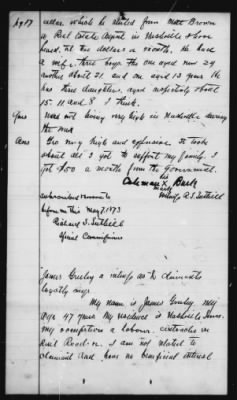 pg 17
cellar which he rented from Matt Brown
a Real Estate Agent in Nashville & have
lived. at ten dollars a month. He had
a wife, three boys the one aged now 24
another about 21 and one aged 13 years He
has three daughters, aged respectively about
15. 11 and 8 I think.
Ques
Were not living very high in Nashville during
the war
Ans
Yes very high and expensive. It took
about all I got to support my family. I
got $50 a month from the Government.
his
Coleman X Bark
mark
Witness R.S. Tuthill
Subscribed & sworn to
before me this May 7 1873
Richard S. Tuthill
Special Commissioner
James Gurley a witness as to claimants
loyalty says.
My name is James Gurley my
age 47 years My residence is Nashville Tenn.
my occupation a laborer.
Rail Road. I am not related to
claimant and have no beneficial interest